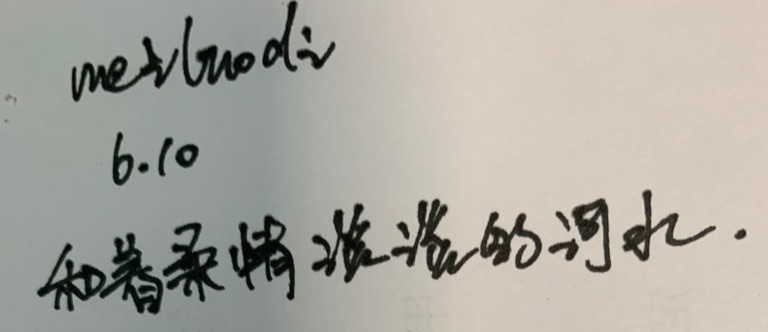 meiluodi
6.10
和着柔情滋滋的河水.